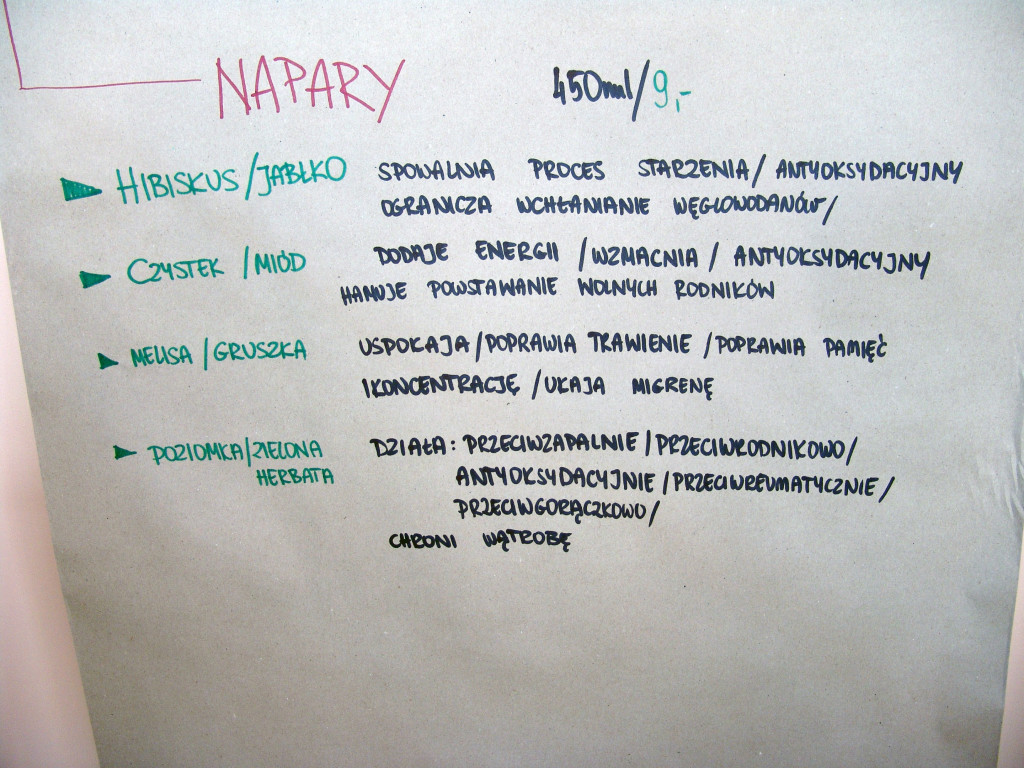 NAPARY 450ml/9,-
HIBISKUS/JABŁKO SPOWALNIA PROCES STARZENIA/ ANTYOKSYDACYJNY
OGRANICZA WCHŁANIANIE WĘGLOWODANÓW/
CZYSTEK /MIÓD DODAJE ENERGII /WZMACNIA/ ANTYOKSYDACYJNY
HAMUJE POWSTAWANIE WOLNYCH RODNIKÓW
MELISA/GRUSZKA USPOKAJA/POPRAWIA TRAWIENIE/POPRAWIA PAMIĘĆ
I KONCENTRACJĘ/UKAJA MIGRENĘ
POZIOMKA/ZIELONA DZIAŁA: PRZECIWZAPALNIE/PRZECIWRODNIKOWO/
HERBATA ANTYOKSYDACYJNIE/PRZECIWREUMATYCZNIE/
PRZECIWGORĄCZKOWO/
CHRONI WĄTROBĘ